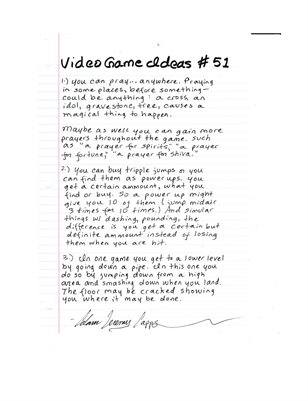 Video Game Ideas #51
1.) you can pray... anywhere. Praying
in some places, before something-
could be anything: a cross, an
idol, gravestone, tree, causes a
magical thing to happen.
Maybe as well you can gain more
prayers throughout the game. such
as "a prayer for spirits," "a prayer
for fortune," "a prayer for shiva."
2.) You can buy tripple jumps or you
can find them as power ups. you
get a certain ammount, what you
find or buy. So a power up might
give you 10 of them (jump midair
3 times for 10 times.) And simular
things w/ dashing, pounding, the
difference is you get a certain but
definite ammount instead of losing
them when you are hit.
3.) In one game you get to a lower level
by going down a pipe. In this one you
do so by jumping down from a high
area and smashing down when you land.
The floor may be cracked showing
you where it may be done.
Adam Jeremy Capps